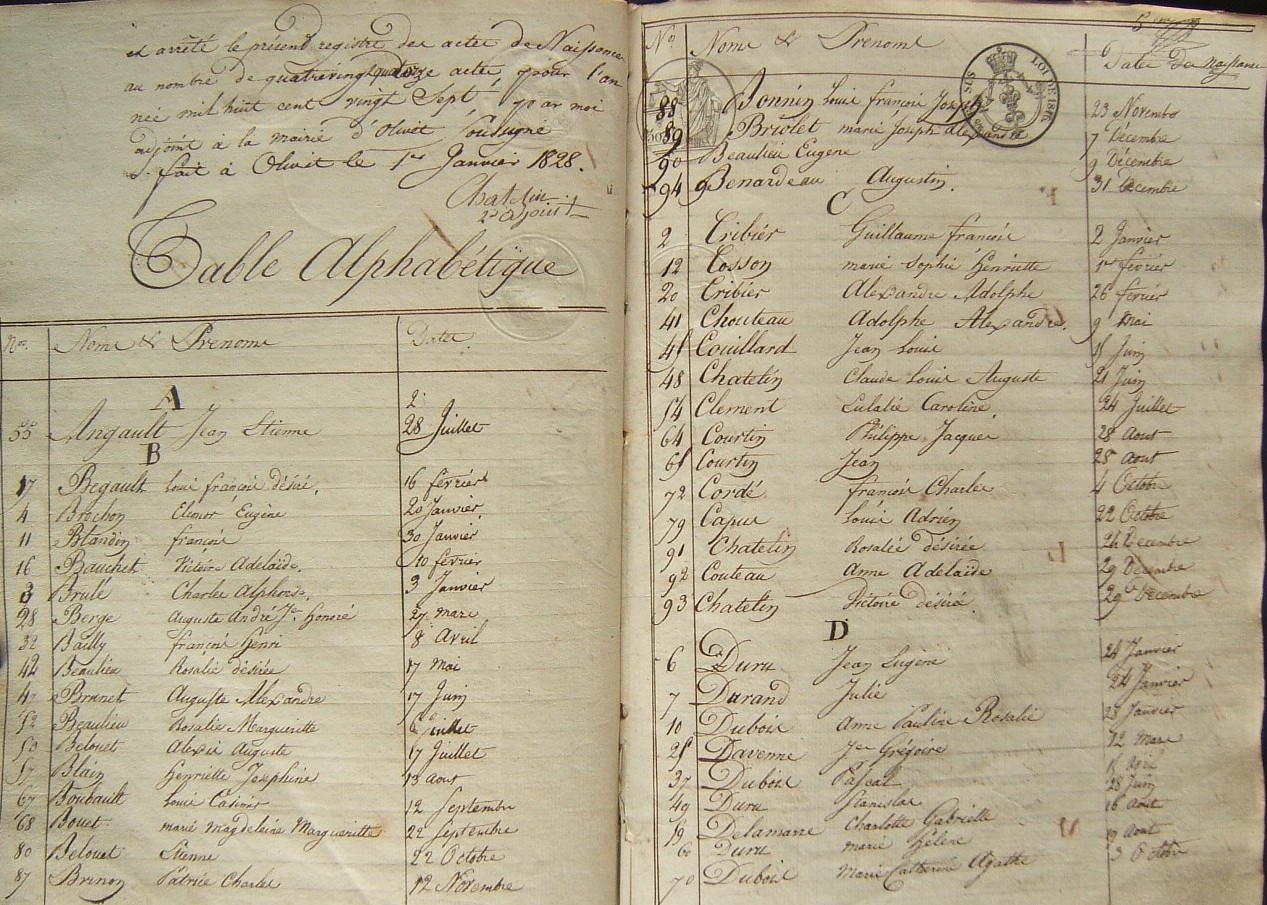 et arrêté le présent registre des actes de Naissance
au nombre de quatrevingt quatorze actes pour l'an
née mil huit cent vingt Sept par moi
adjoint à la mairie d'Olivet Soussigné
fait à Olivet le 1er Janvier 1828.
Chatelin
2e adjoint
Table Alphabétique
Nos Noms & Prenoms Dates
A
55 Angault Jean Etienne 28 Juillet
B
17 Begault louis françois désiré. 16 février
4 Brochon Elenor Eugène 20 Janvier
11 Blandin françois 30 Janvier
16 Bauchet Victoire Adelaide 10 février
3 Brulé Charles Alphonse. 3 Janvier
28 Berge Auguste André Jn. Honoré 27 mars
32 Bailly françois henri 8 Avril
42 Beaulieu Rosalie désirée 17 Mai
47 Brunet Auguste Alexandre 17 Juin
52 Beaulieu Rosalie Margueritte 6 Juillet
53 Belouet Alexis Auguste 17 Juillet
57 Blain henriette Josephine 13 aout
67 Boubault Louis Casimir 12 Septembre
68 Bouet marie magdeleine Margueritte 22 Septembre
80 Belouet Etienne 22 Octobre
87 Brinon Patrice Charles 12 Novembre
5
Nos Noms & Prenoms Dates de Naissance
LOI DE 1816
88 Bonnin Louis françois Joseph 23 Novembre
89 Briolet marie Joseph Alexandre 7 Decembre
90 Beaulieu Eugene 9 Décembre
94 Benardeau Augustin. 31 Decembre
C
2 Cribier Guillaume françois 2 Janvier
12 Cosson marie Sophie henriette 1er février
20 Cribier Alexandre Adolphe 26 fevrier
41 Chouteau Adolphe Alexandre. 9 Mai
45 Couillard Jean Louis 15 Juin
48 Chatelin Claude Louis Auguste 21 Juin
54 Clement Eulalie Caroline. 24 Juillet
64 Courtin Philippe Jacques 28 Aout
65 Courtin Jean 28 aout
72 Cordé françois Charles 4 Octobre
79 Capus Louis Adrien 22 Octobre
91 Chatelin Rosalie désirée 24 Decembre
92 Couteau Anne Adelaide 29 Decembre
93 Chatelin Victoire désirée 29 Decembre
D
6 Duru Jean Eugène 24 Janvier
7 Durand Julie 24 Janvier
10 Dubois Anne Pauline Rosalie 28 Janvier
25 Davenne Jn Grégoire 12 Mars
37 Dubois Pascal 15 Avril
49 Duru Stanislas 28 Juin
59 Delamare Charlotte Gabrielle 16 Aout
60 Duru marie hélène 19 Aout
70 Dubois Marie Catherine Agathe 3 Octobre